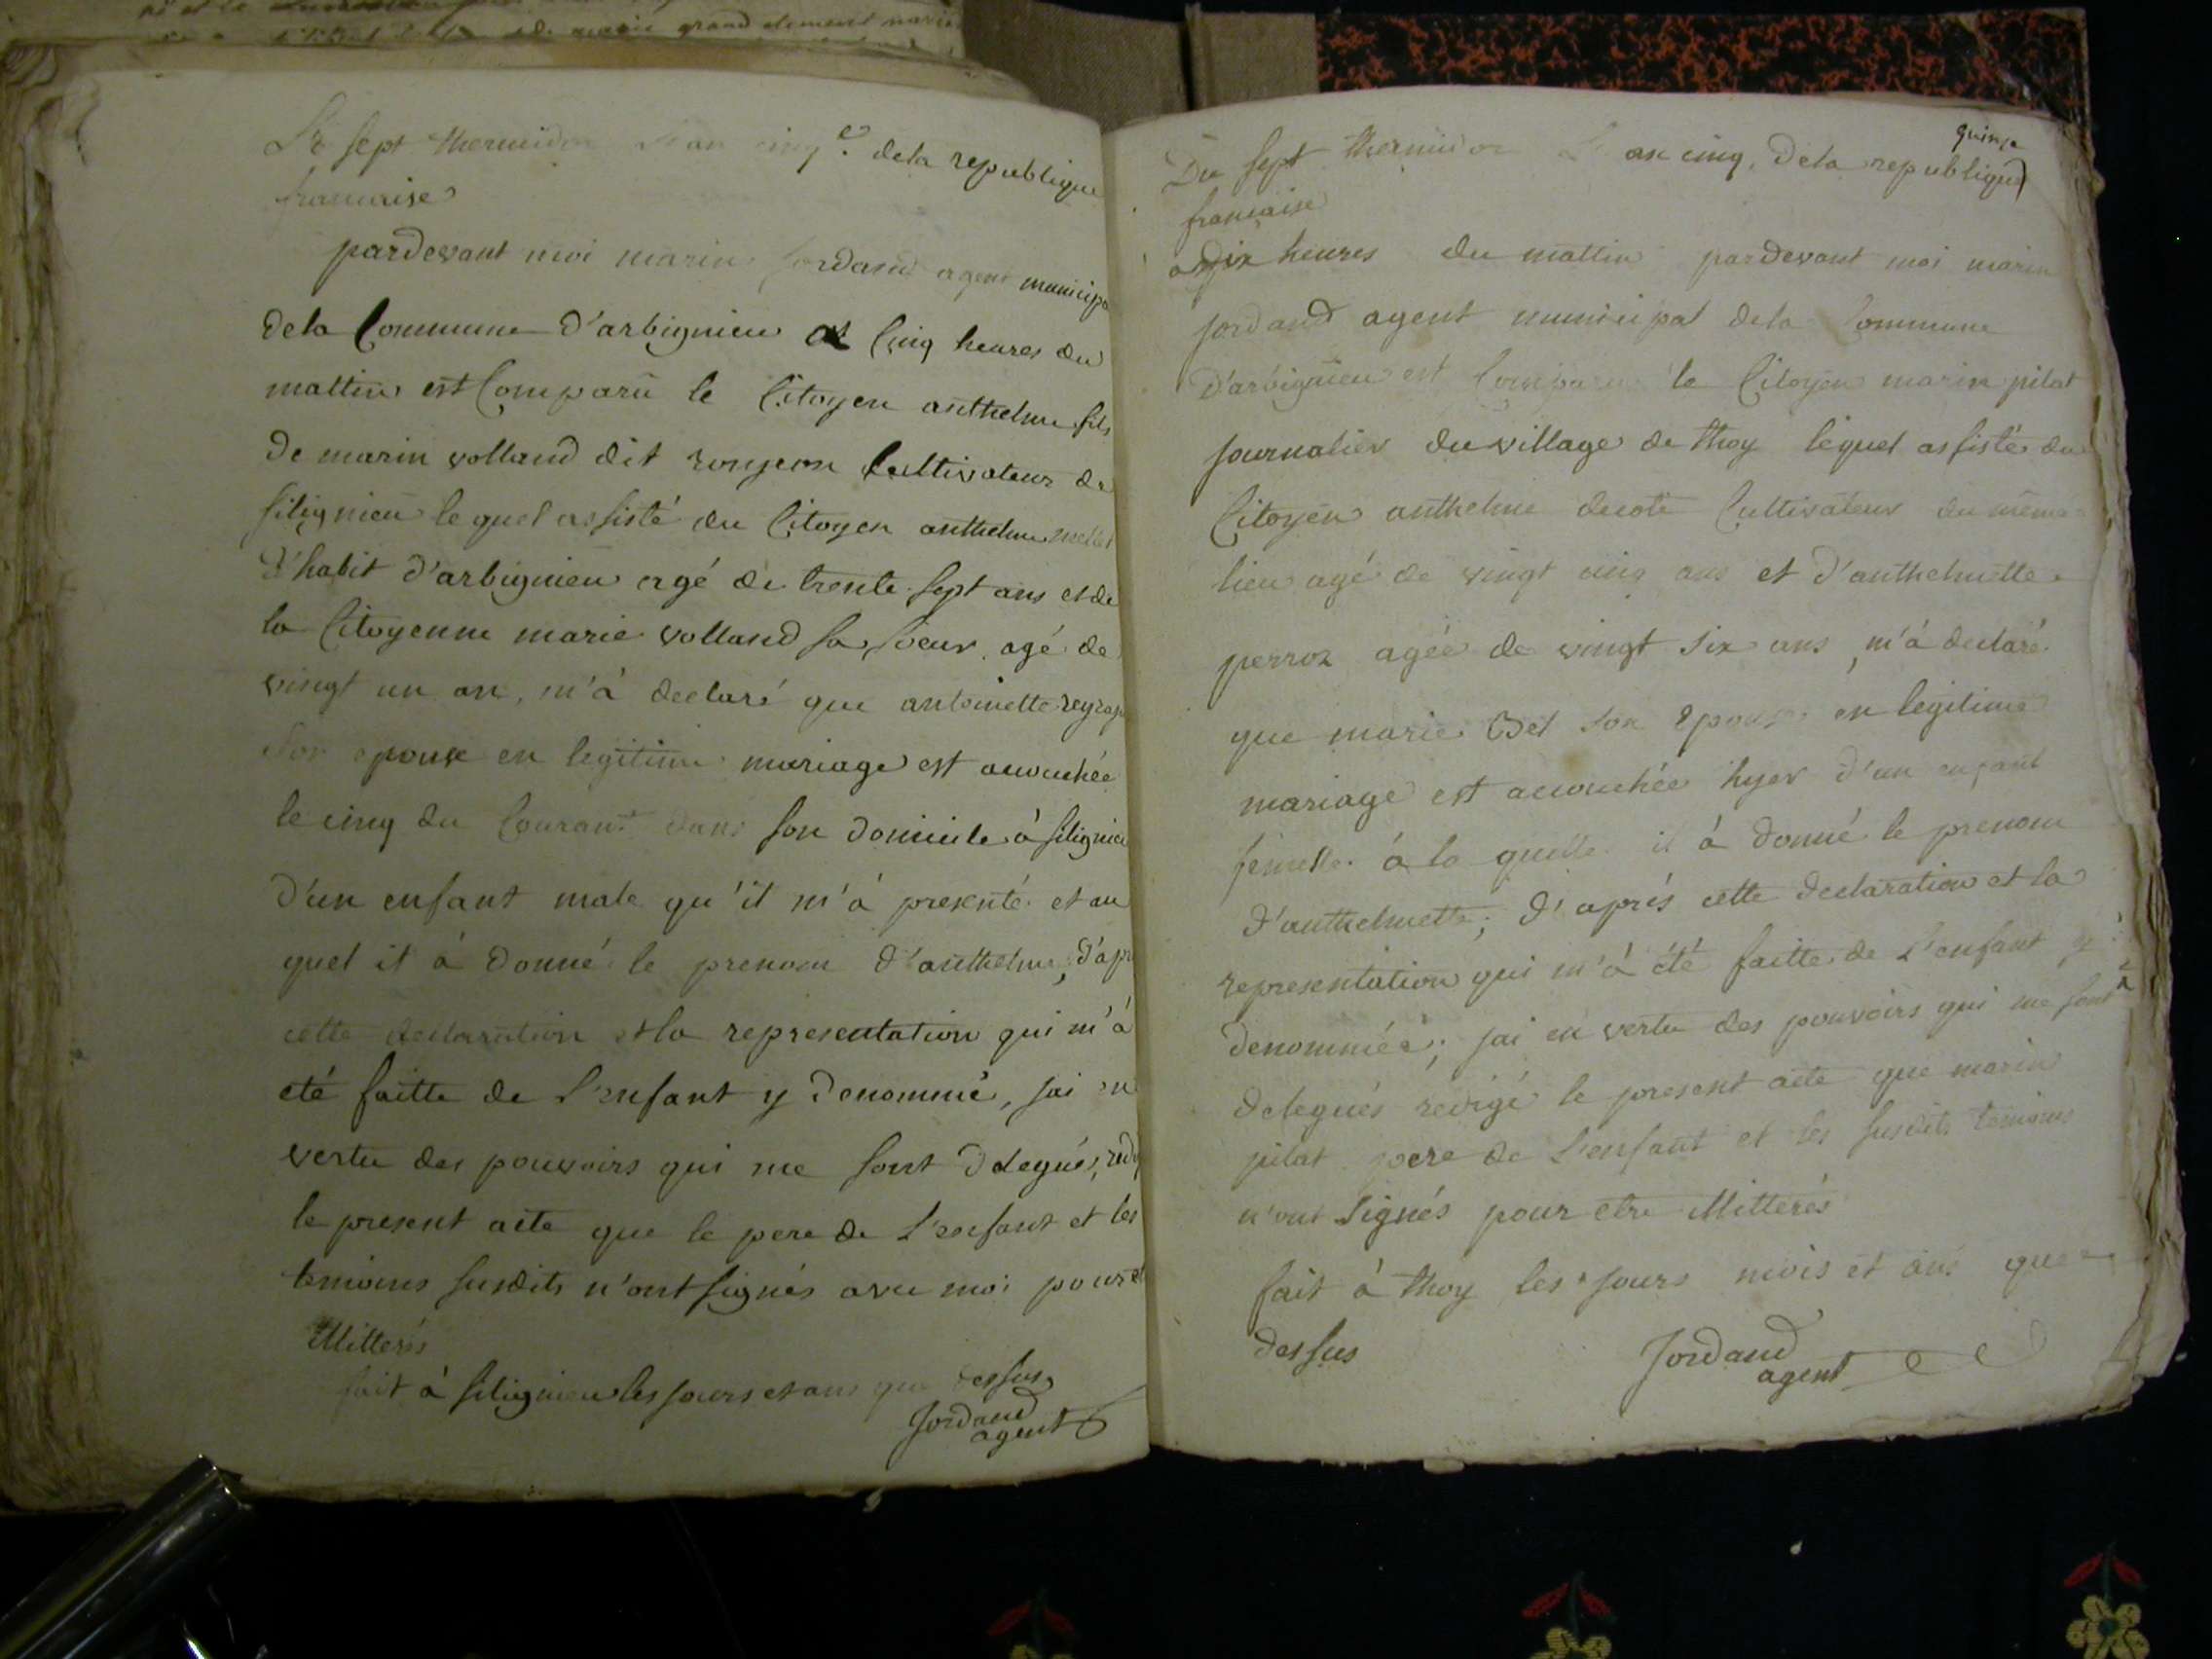 Le sept thermidor L'an cinq.e dela republique
francaise
pardevant moi marin Jordand agent municipa
dela Commune d'arbignieu a Cinq heures du
mattin est Comparu le Citoyen anthelme fils
de marin volland dit ronjeon Cultivateur de
silignieu lequel assisté du Citoyen anthelme
d'habit d'arbignieu agé de trente sept ans et de
la Citoyenne marie volland sa soeur agé de
vingt un an, m'à declaré que antoinette
son epouse en legitime mariage est acouchée
le cinq du Courant dans son domicile à silignieu
d'un enfant male qu'il m'à presenté et au
quel it à donné le prenom d'anthelme, d'apr
cette declaration et la representation qui m'à
eté faitte de L'enfant y denommé, jai en
vertu des pouvoirs qui me sont delegués, redi
le present acte que le pere de L'enfant et les
temoins susdits n'ont signés avec moi pour et
illitterés
fait à siligneu les jours et ans que dessus
Jordand
agent
quinze
Du sept thermidor L'an cinq, dela republique
francaise
a dix heures du mattin pardevant moi marin
jordand agent municipal dela Commune
d'arbignieu est Comparu le Citoyen marin pilat
journalier du village de thoy lequel assisté du
Citoyen anthelme decoté Cultivateur du même
lieu agé de vingt cinq ans et d'anthelmette
perroz agée de vingt six ans, m'à declaré
que marie Bet son epouse en legitime
mariage est acouchée hyer d'un enfant
femelle à la quelle il à donné le prenom
d'anthelmette; d'aprés cette declaration et la
representation qui m'à été faitte de L'enfant y
denommée; jai en vertu des pouvoirs qui me sont
delegués redigé le present acte que marin
pilat pere de L'enfant et les susdits temoins
n'ont signés pour etre illitterés
fait à thoy les jours mois et ans que
dessus
Jordand
agent